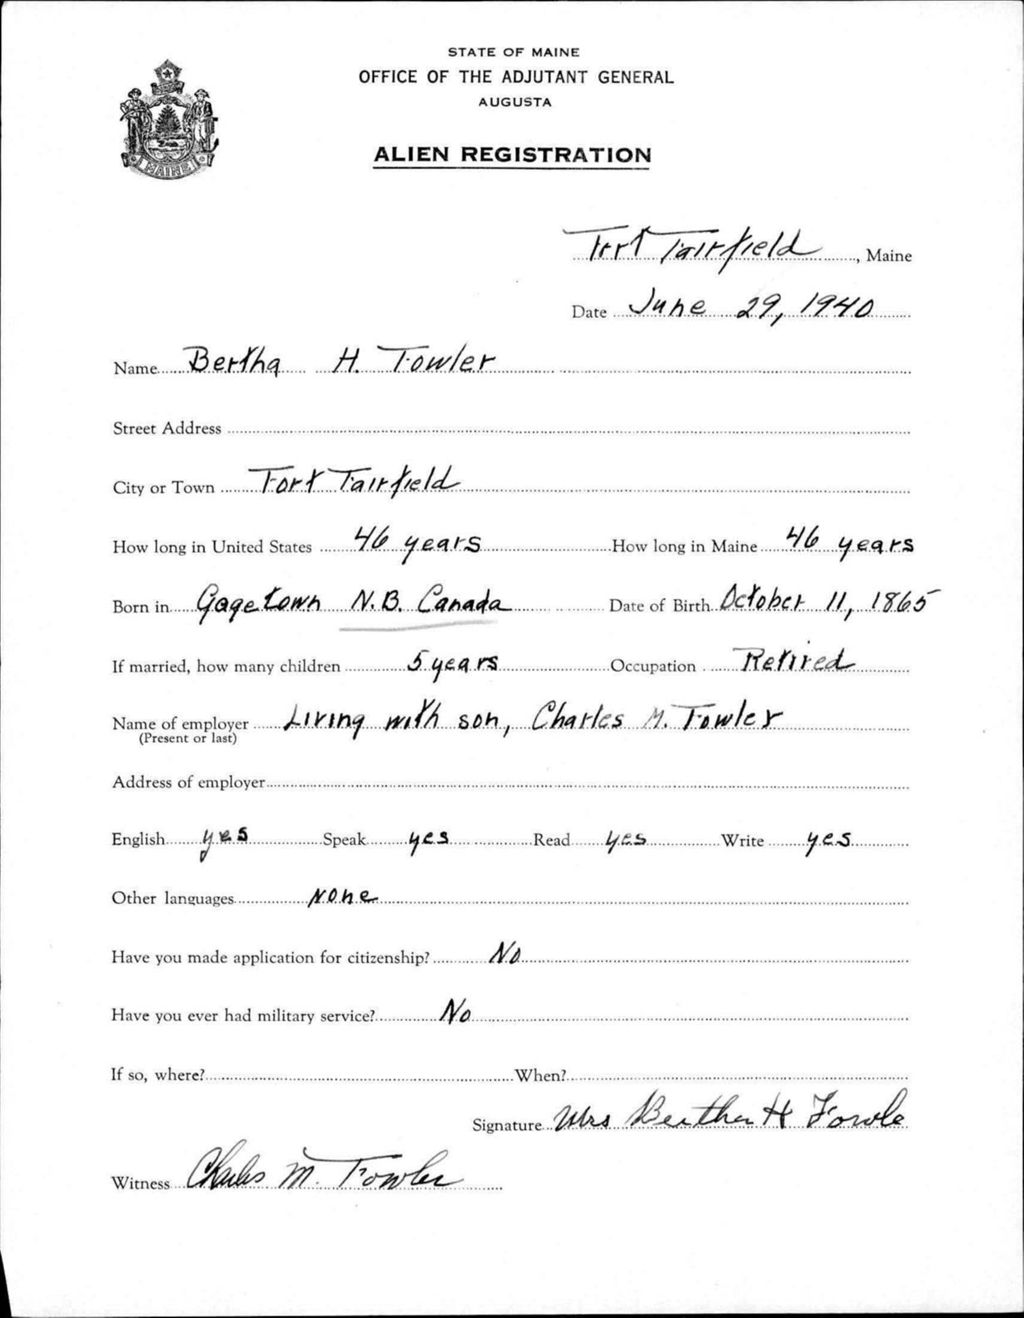 STATE OF MAINE
OFFICE OF THE ADJUTANT GENERAL
AUGUSTA
ALIEN REGISTRATION
MAINE
Fort Fairfield, Maine
Date June 29, 1940
Name Bertha H. Fowler
Street Address
City or Town Fort Fairfield
How long in United States 46 years How long in Maine 46 years
Born in Gagetown N.B. Canada Date of Birth October 11, 1865
If married, how many children 5 years Occupation Retired
Name of employer Living with son, Charles M. Fowler
(Present or last)
Address of employer
English yes Speak yes Read yes Write yes
Other languages none
Have you made application for citizenship? No
Have you ever had military service? No
If so, where? When?
Signature Mrs Bertha H Fowle
Witness Charles M. Fowler